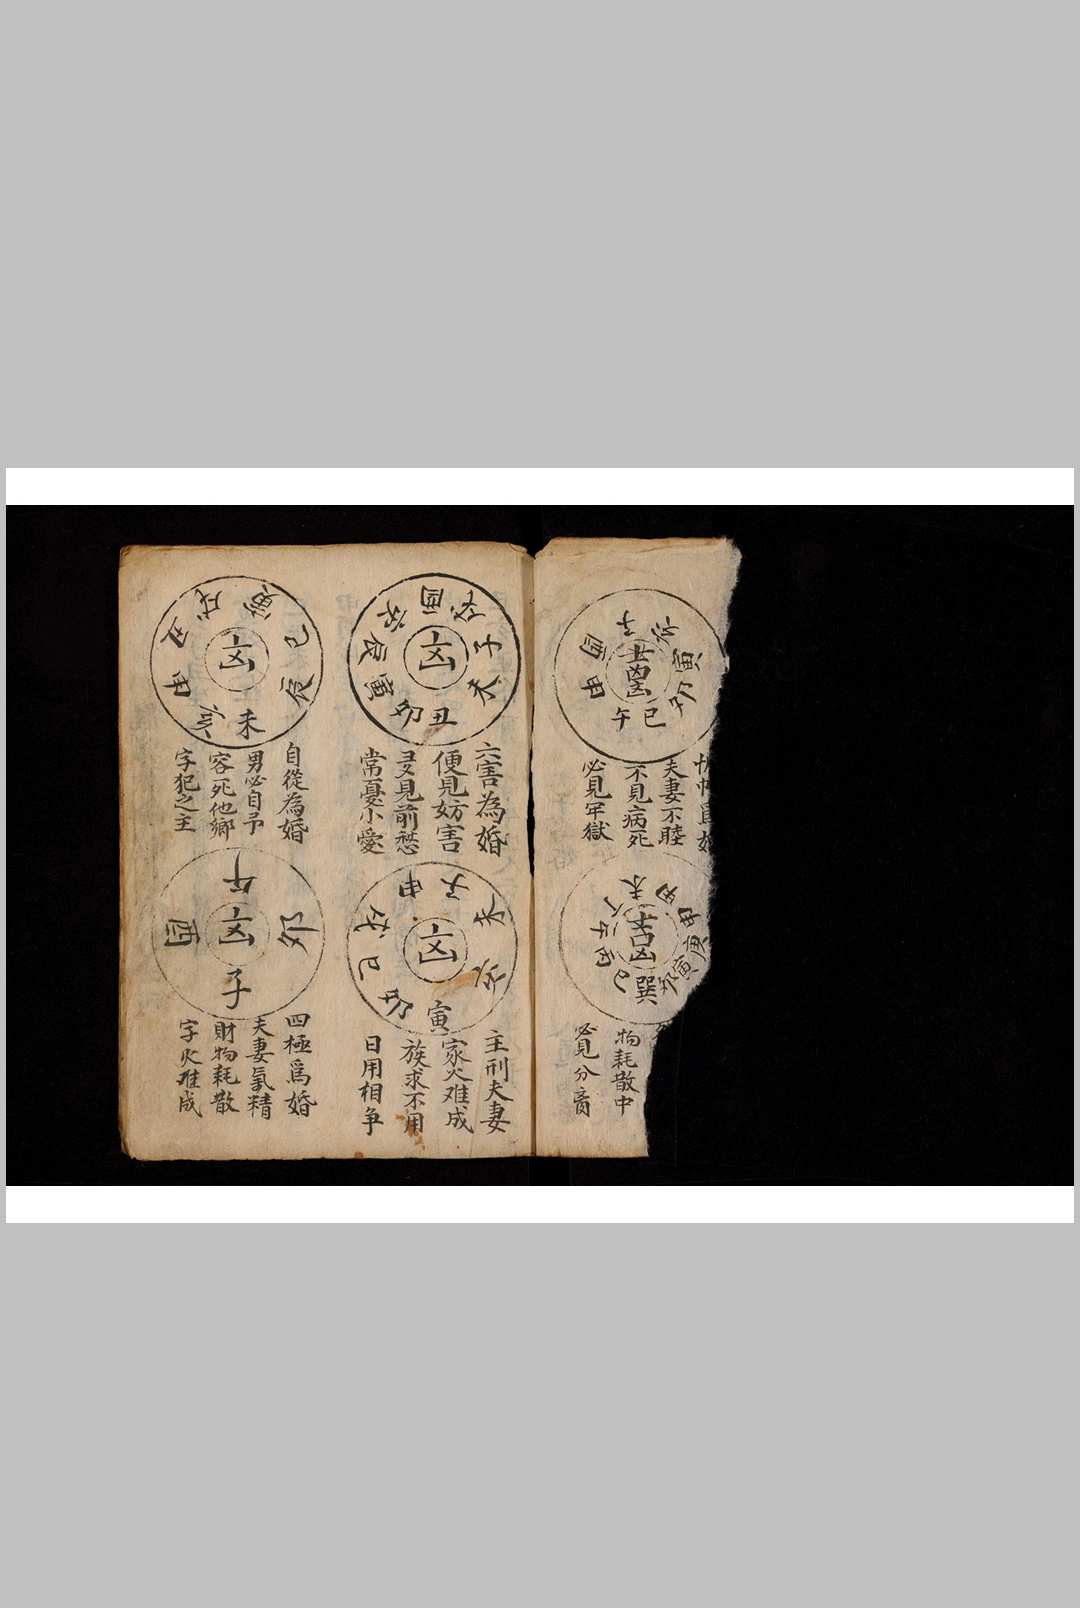 夫妻不睦
不見病死
必見牢獄
子
亥
寅
卯
巳
午
申
酉
物耗散中
必見分
未
申
庚
寅
卯
巽
巳
丙
午
丁
六害為婚
便見妨害
見前愁
常憂小愛
凶
酉
戌
子
未
丑
卯
寅
辰
亥
主刑夫妻
家火难成
族求不用
日用相争
凶
申
子
未
亥
寅
卯
巳
戌
自從為婚
男必自予
容死他鄉
字犯之主
凶
寅
巳
辰
未
亥
申
丑
戌
四極爲婚
夫妻氣精
財物耗散
字火难成
凶
午
卯
子
酉